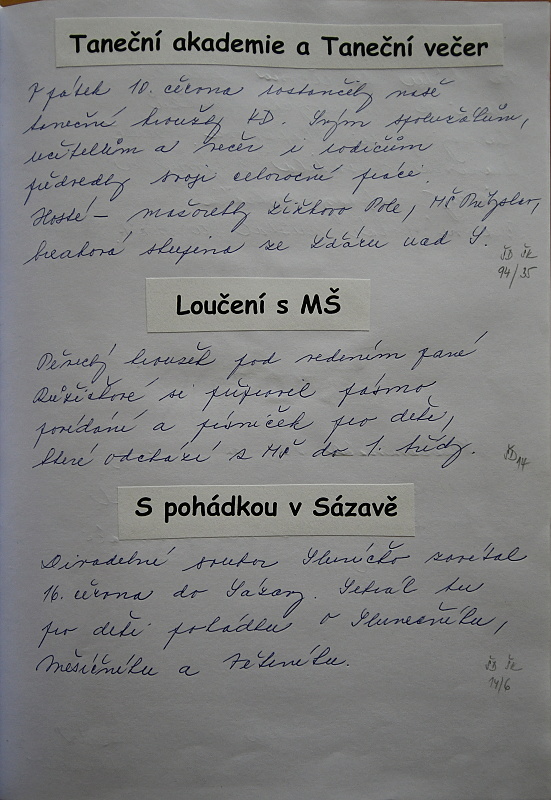 Taneční akademie a Taneční večer
V pátek 10. června roztančily naše
taneční kroužky KD. Svým spolužákům,
učitelkům a večer i rodičům
předvedly svoji celoroční práci.
Hosté – mažoretky Žižkovo Pole, MŠ Přibyslav,
breaková skupina ze Žďáru nad S.
ŠD ŠK
94/35
Loučení s MŠ
Pěvecký kroužek pod vedením paní
Růžičkové si připravil pásmo
povídání a písniček pro děti,
které odchází z MŠ do 1. třídy.
ŠD 14
S pohádkou v Sázavě
Divadelní soubor Sluníčko zavítal
16. června do Sázavy. Sehrál tu
pro děti pohádku o Slunečníku,
Měsíčníku a Větrníku.
ŠD ŠK
14/6